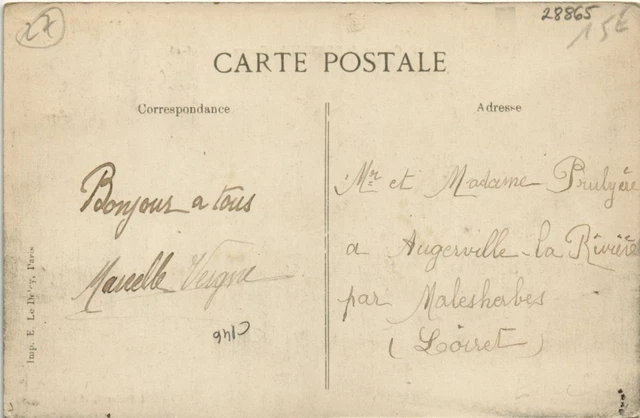 28865
15€
CARTE POSTALE
Correspondance
Adresse
Bonjour a tous
Marcelle Vergne
Mr et Madame
a Augerville-la Rivière
par Malesherbes
(Loiret)
Imp. E. Le Deley, Paris